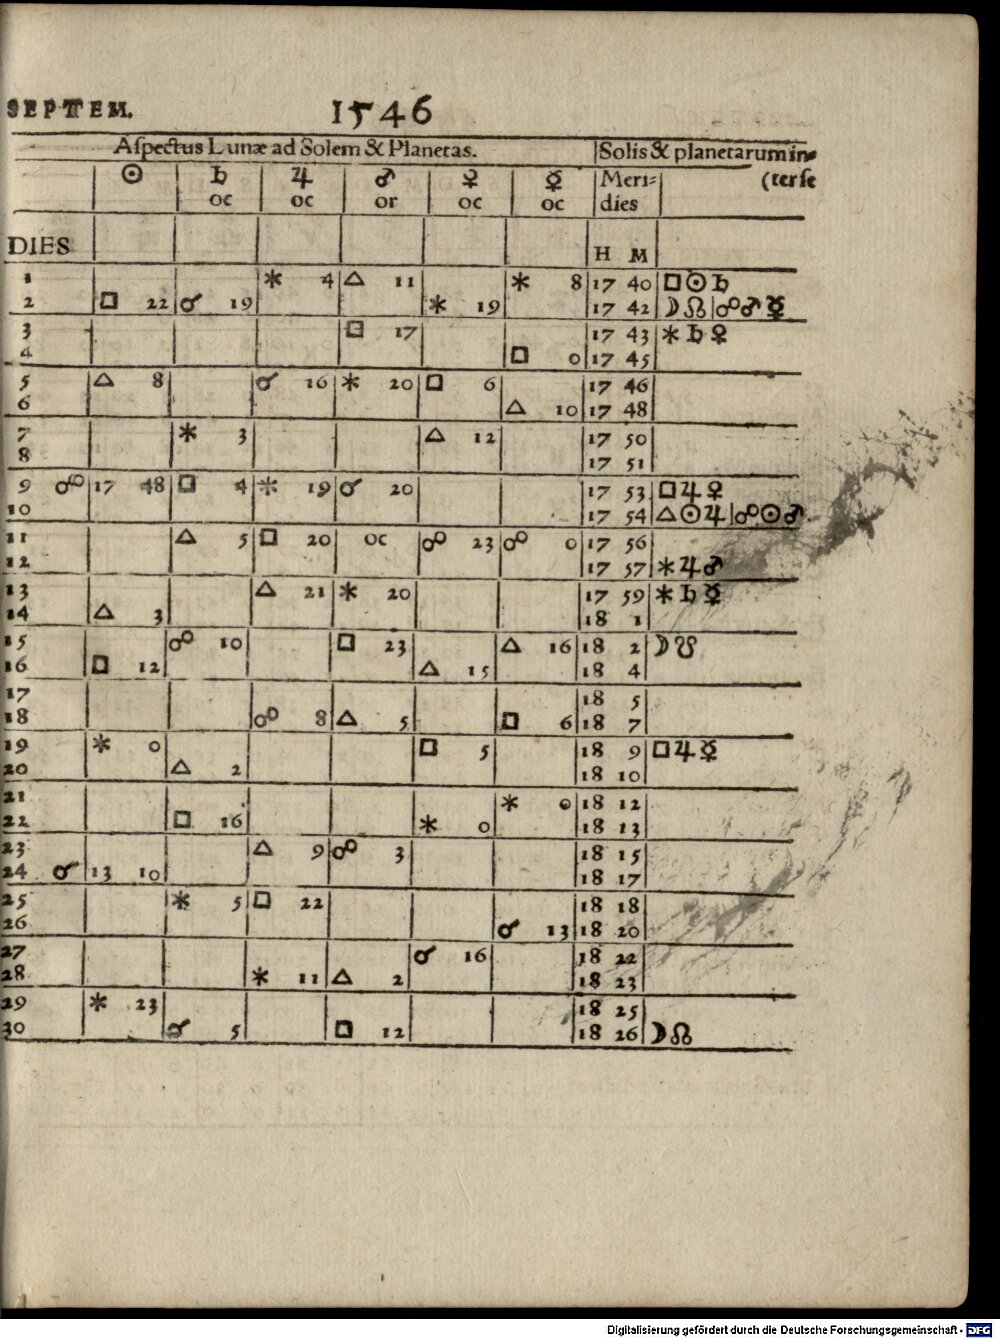 SEPTEM. 1546
Aſpectus Lunæ ad Solem & Planetas. Solis & planetarum in-
☉ ♄ ♃ ♂ ♀ ☿ Meri= (terſe
oc oc or oc oc dies
DIES H M
1 ⚹ 4 △ 11 ⚹ 8 17 40 □☉♄
2 □ 22 ☌ 19 ⚹ 19 17 42 ☽☊|☍♂☿
3 □ 17 17 43 ⚹♄♀
4 □ 0 17 45
5 △ 8 ☌ 16 ⚹ 20 □ 6 17 46
6 △ 10 17 48
7 ⚹ 3 △ 12 17 50
8 17 51
9 ☍ 17 48 □ 4 ⚹ 19 ☌ 20 17 53 □♃♀
10 17 54 △☉♃|☍☉♂
11 △ 5 □ 20 oc ☍ 23 ☍ 0 17 56
12 17 57 ⚹♃♂
13 △ 21 ⚹ 20 17 59 ⚹♄☿
14 △ 3 18 1
15 ☍ 10 □ 23 △ 16 18 2 ☽☋
16 □ 12 △ 15 18 4
17 18 5
18 ☍ 8 △ 5 □ 6 18 7
19 ⚹ 0 □ 5 18 9 □♃☿
20 △ 2 18 10
21 ⚹ 0 18 12
22 □ 16 ⚹ 0 18 13
23 △ 9 ☍ 3 18 15
24 ☌ 13 10 18 17
25 ⚹ 5 □ 22 18 18
26 ☌ 13 18 20
27 ☌ 16 18 22
28 ⚹ 11 △ 2 18 23
29 ⚹ 23 18 25
30 ☌ 5 □ 12 18 26 ☽☊
Digitalisierung gefördert durch die Deutsche Forschungsgemeinschaft - DFG